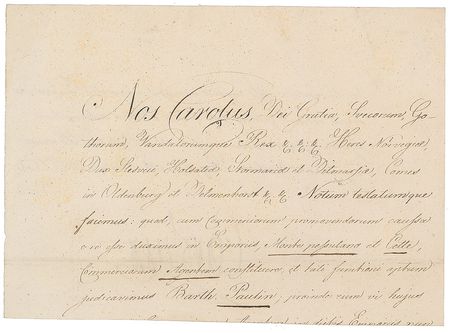 Nos Carolus, Dei Gratia, Svecorum, Go-
thorum, Vandalorumque Rex &. &. &. Heres Norvegiæ,
Dux Slesvici, Holsatiæ, Stormariæ et Ditmarsiæ, Comes
in Oldenburg et Delmenhorst &. &. Notum testatumque
facimus: quod, cum Commerciorum promovendorum caussa
e re esse duximus in Emporiis, Montepessulano et Cette,
Commerciorum Agentem constituere, et huic functioni aptum
judicavimus Barth. Paulin, proinde eum vi hujus